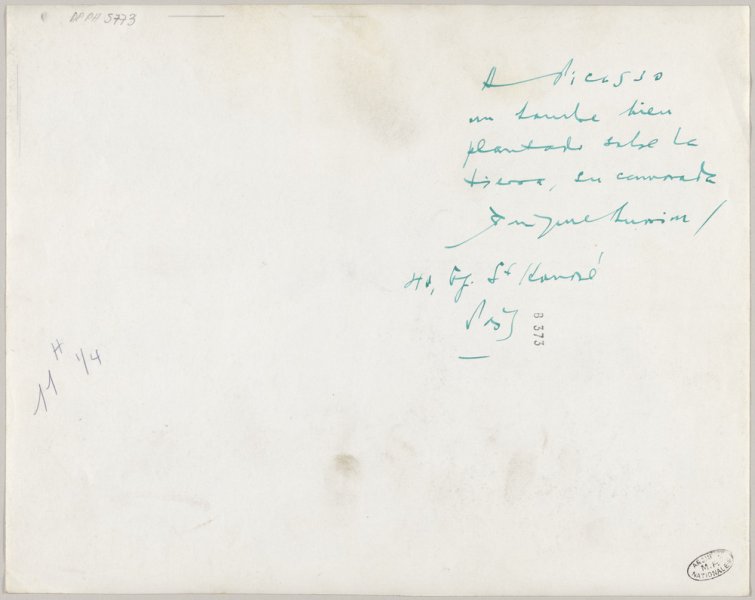 APPH 5773
A Picasso
un hombre bien
plantado sobre la
tierra, su camarada
40, Fg. St Honoré
B 373
H
11 1/4
ARCHIVES
NATIONALES